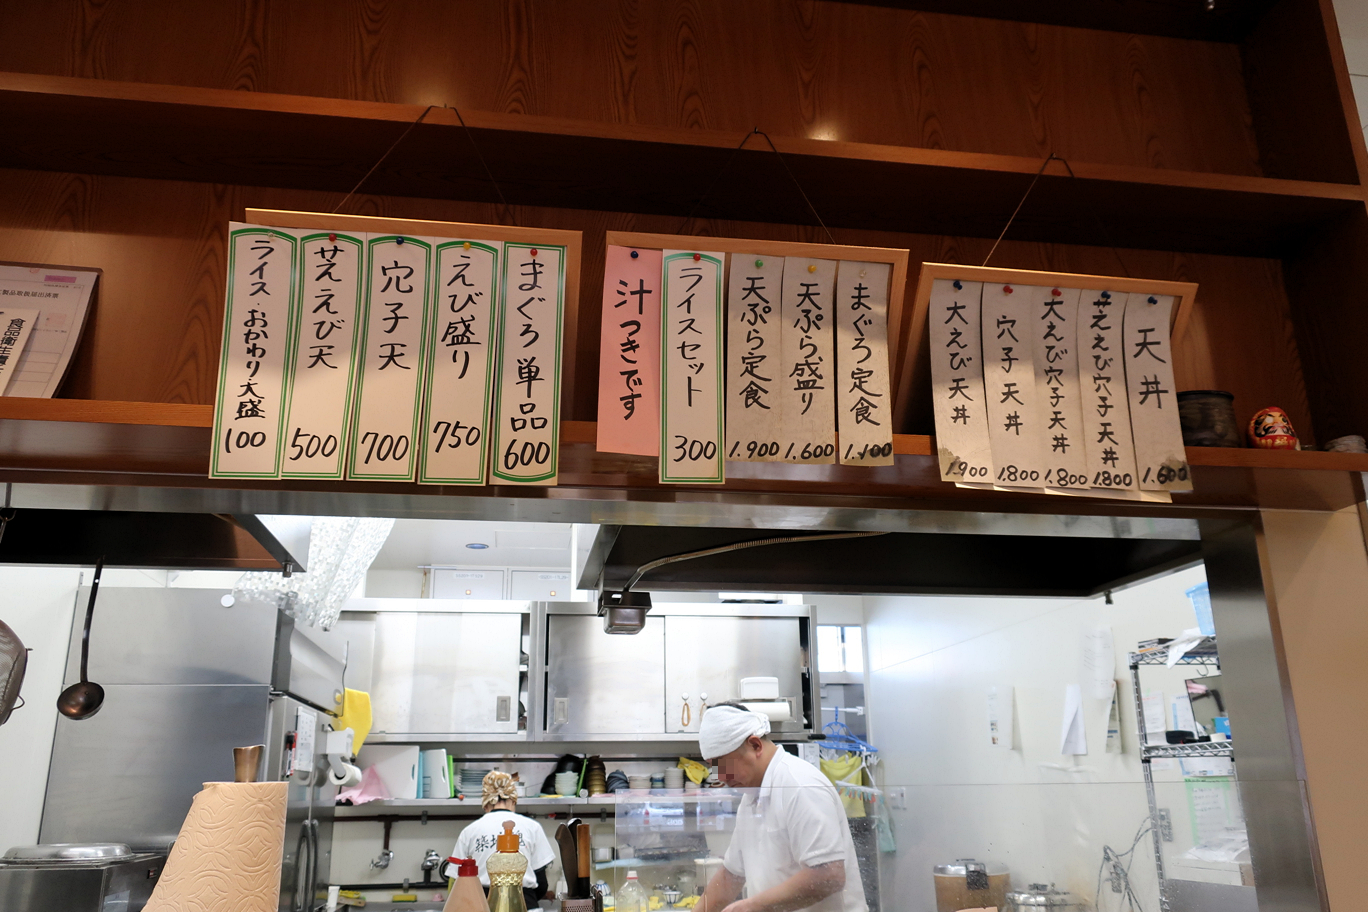 天丼
1.600
せええび穴子天丼
1.800
大えび穴子天丼
1.800
穴子天丼
1.800
大えび天丼
1.900
まぐろ定食
1.100
天ぷら盛り
1.600
天ぷら定食
1.900
ライスセット
300
汁つきです
まぐろ単品
600
えび盛り
750
穴子天
700
せええび天
500
ライス・おかわり大盛
100
食品衛生責
築地